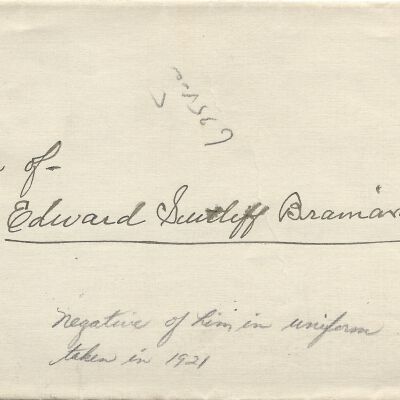 of-
Edward Sutliff Braman
negative of him in uniform
taken in 1921